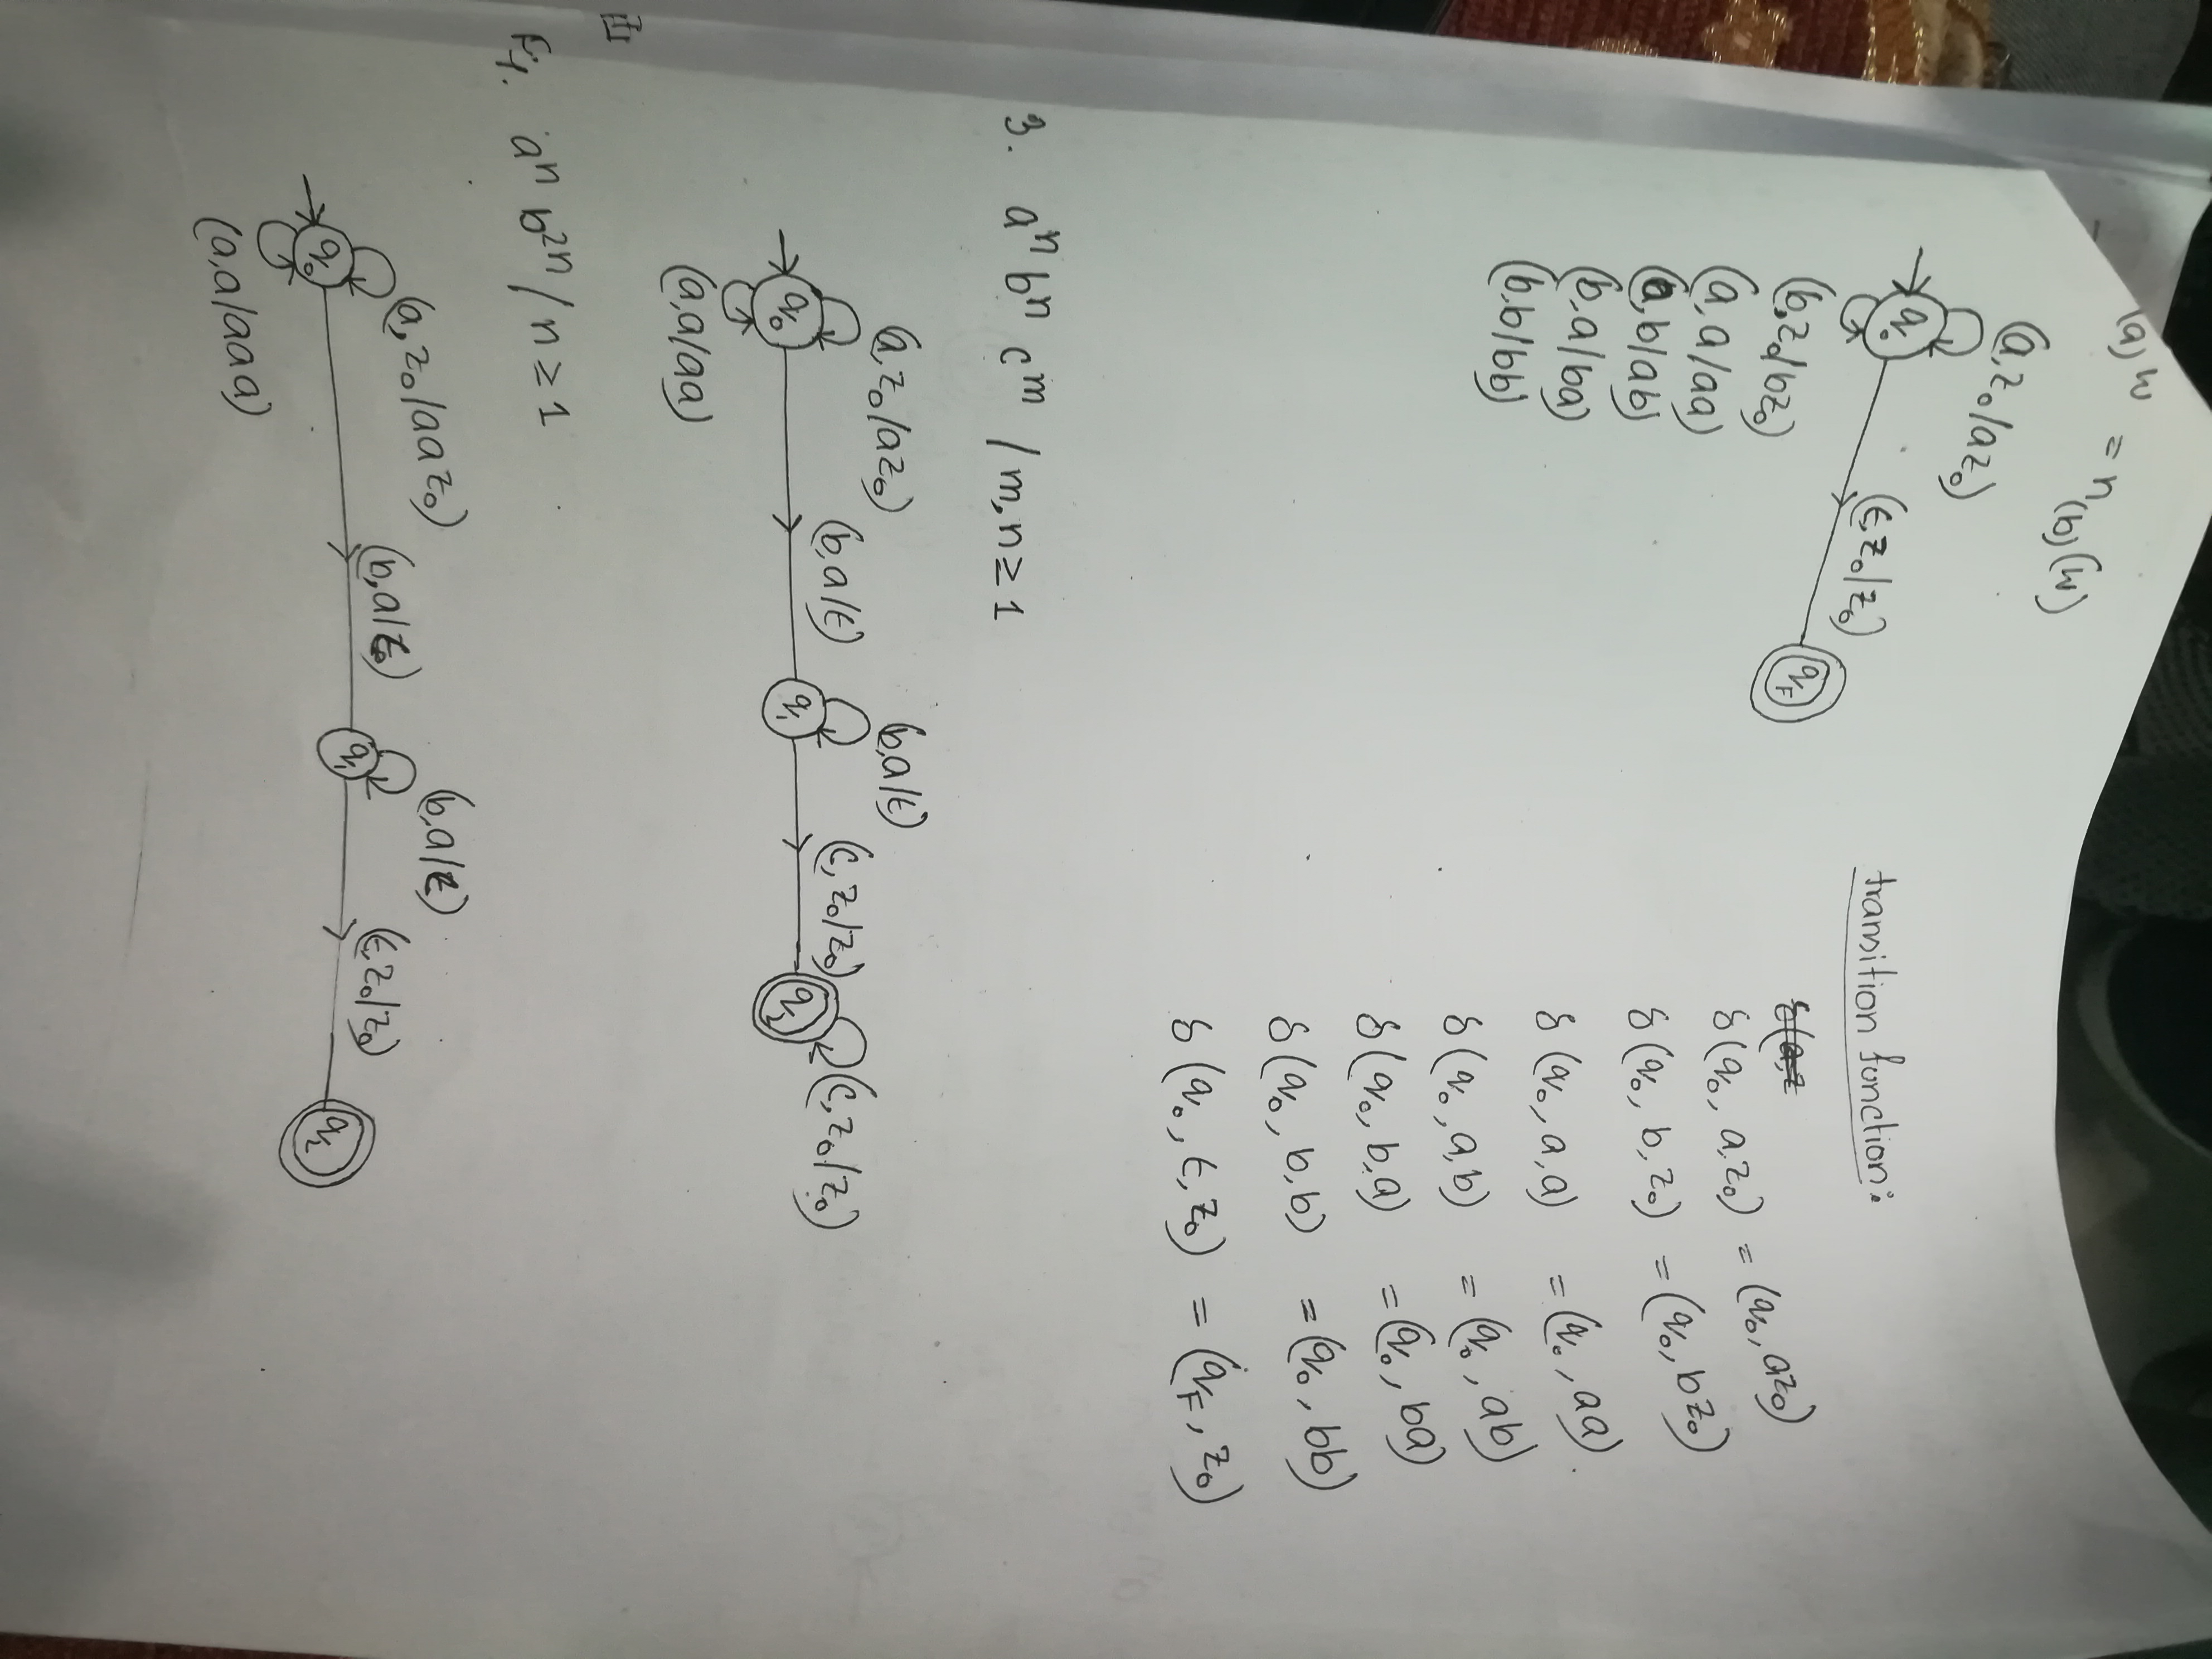 (a)w = n(b)(w)
(a, z₀/az₀)
q₀
(ε, z₀/z₀)
qF
(b, z₀/bz₀)
(a, a/aa)
(a, b/ab)
(b, a/ba)
(b, b/bb)
transition function:
δ(q₀, a, z₀) = (q₀, az₀)
δ(q₀, b, z₀) = (q₀, bz₀)
δ(q₀, a, a) = (q₀, aa).
δ(q₀, a, b) = (q₀, ab)
δ(q₀, b, a) = (q₀, ba)
δ(q₀, b, b) = (q₀, bb)
δ(q₀, ε, z₀) = (qF, z₀)
3. aⁿ bⁿ cᵐ / m, n ≥ 1
(a, z₀/az₀) (b, a/ε) (b, a/ε) (c, z₀/z₀) (c, z₀/z₀)
q₀ q₁ q₂
(a, a/aa)
aⁿ b²ⁿ / n ≥ 1
(a, z₀/aaz₀) (b, a/ε) (b, a/ε) (ε, z₀/z₀)
q₀ q₁ q₂
(a, a/aaa)